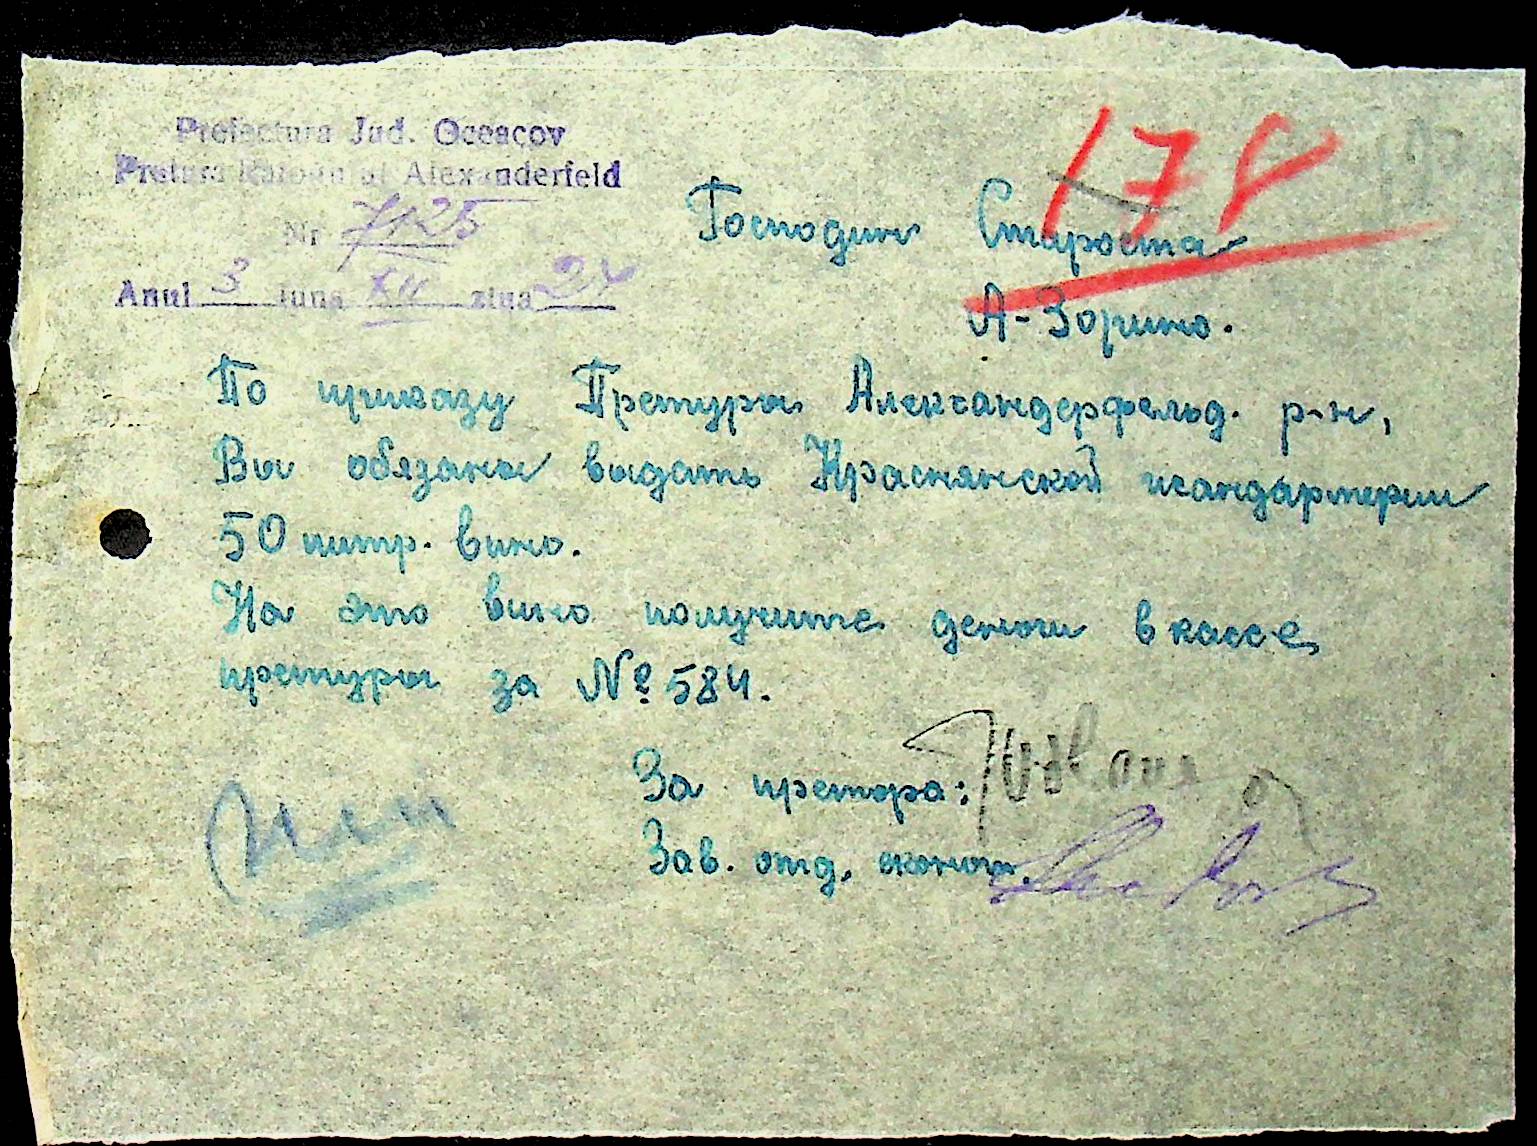 Prefectura Jud. Oceacov
Pretura Raionului Alexanderfeld
Nr 7125
Anul 3 luna XII ziua 24
178
Господин Староста
А-Зорино.
По приказу Претуры Александерфельд. р-н,
Вы обязаны выдать Краснянской жандармерии
50 литр. вино.
На это вино получите деньги в кассе
претуры за № 584.
За претора:
Зав. отд. эконом.